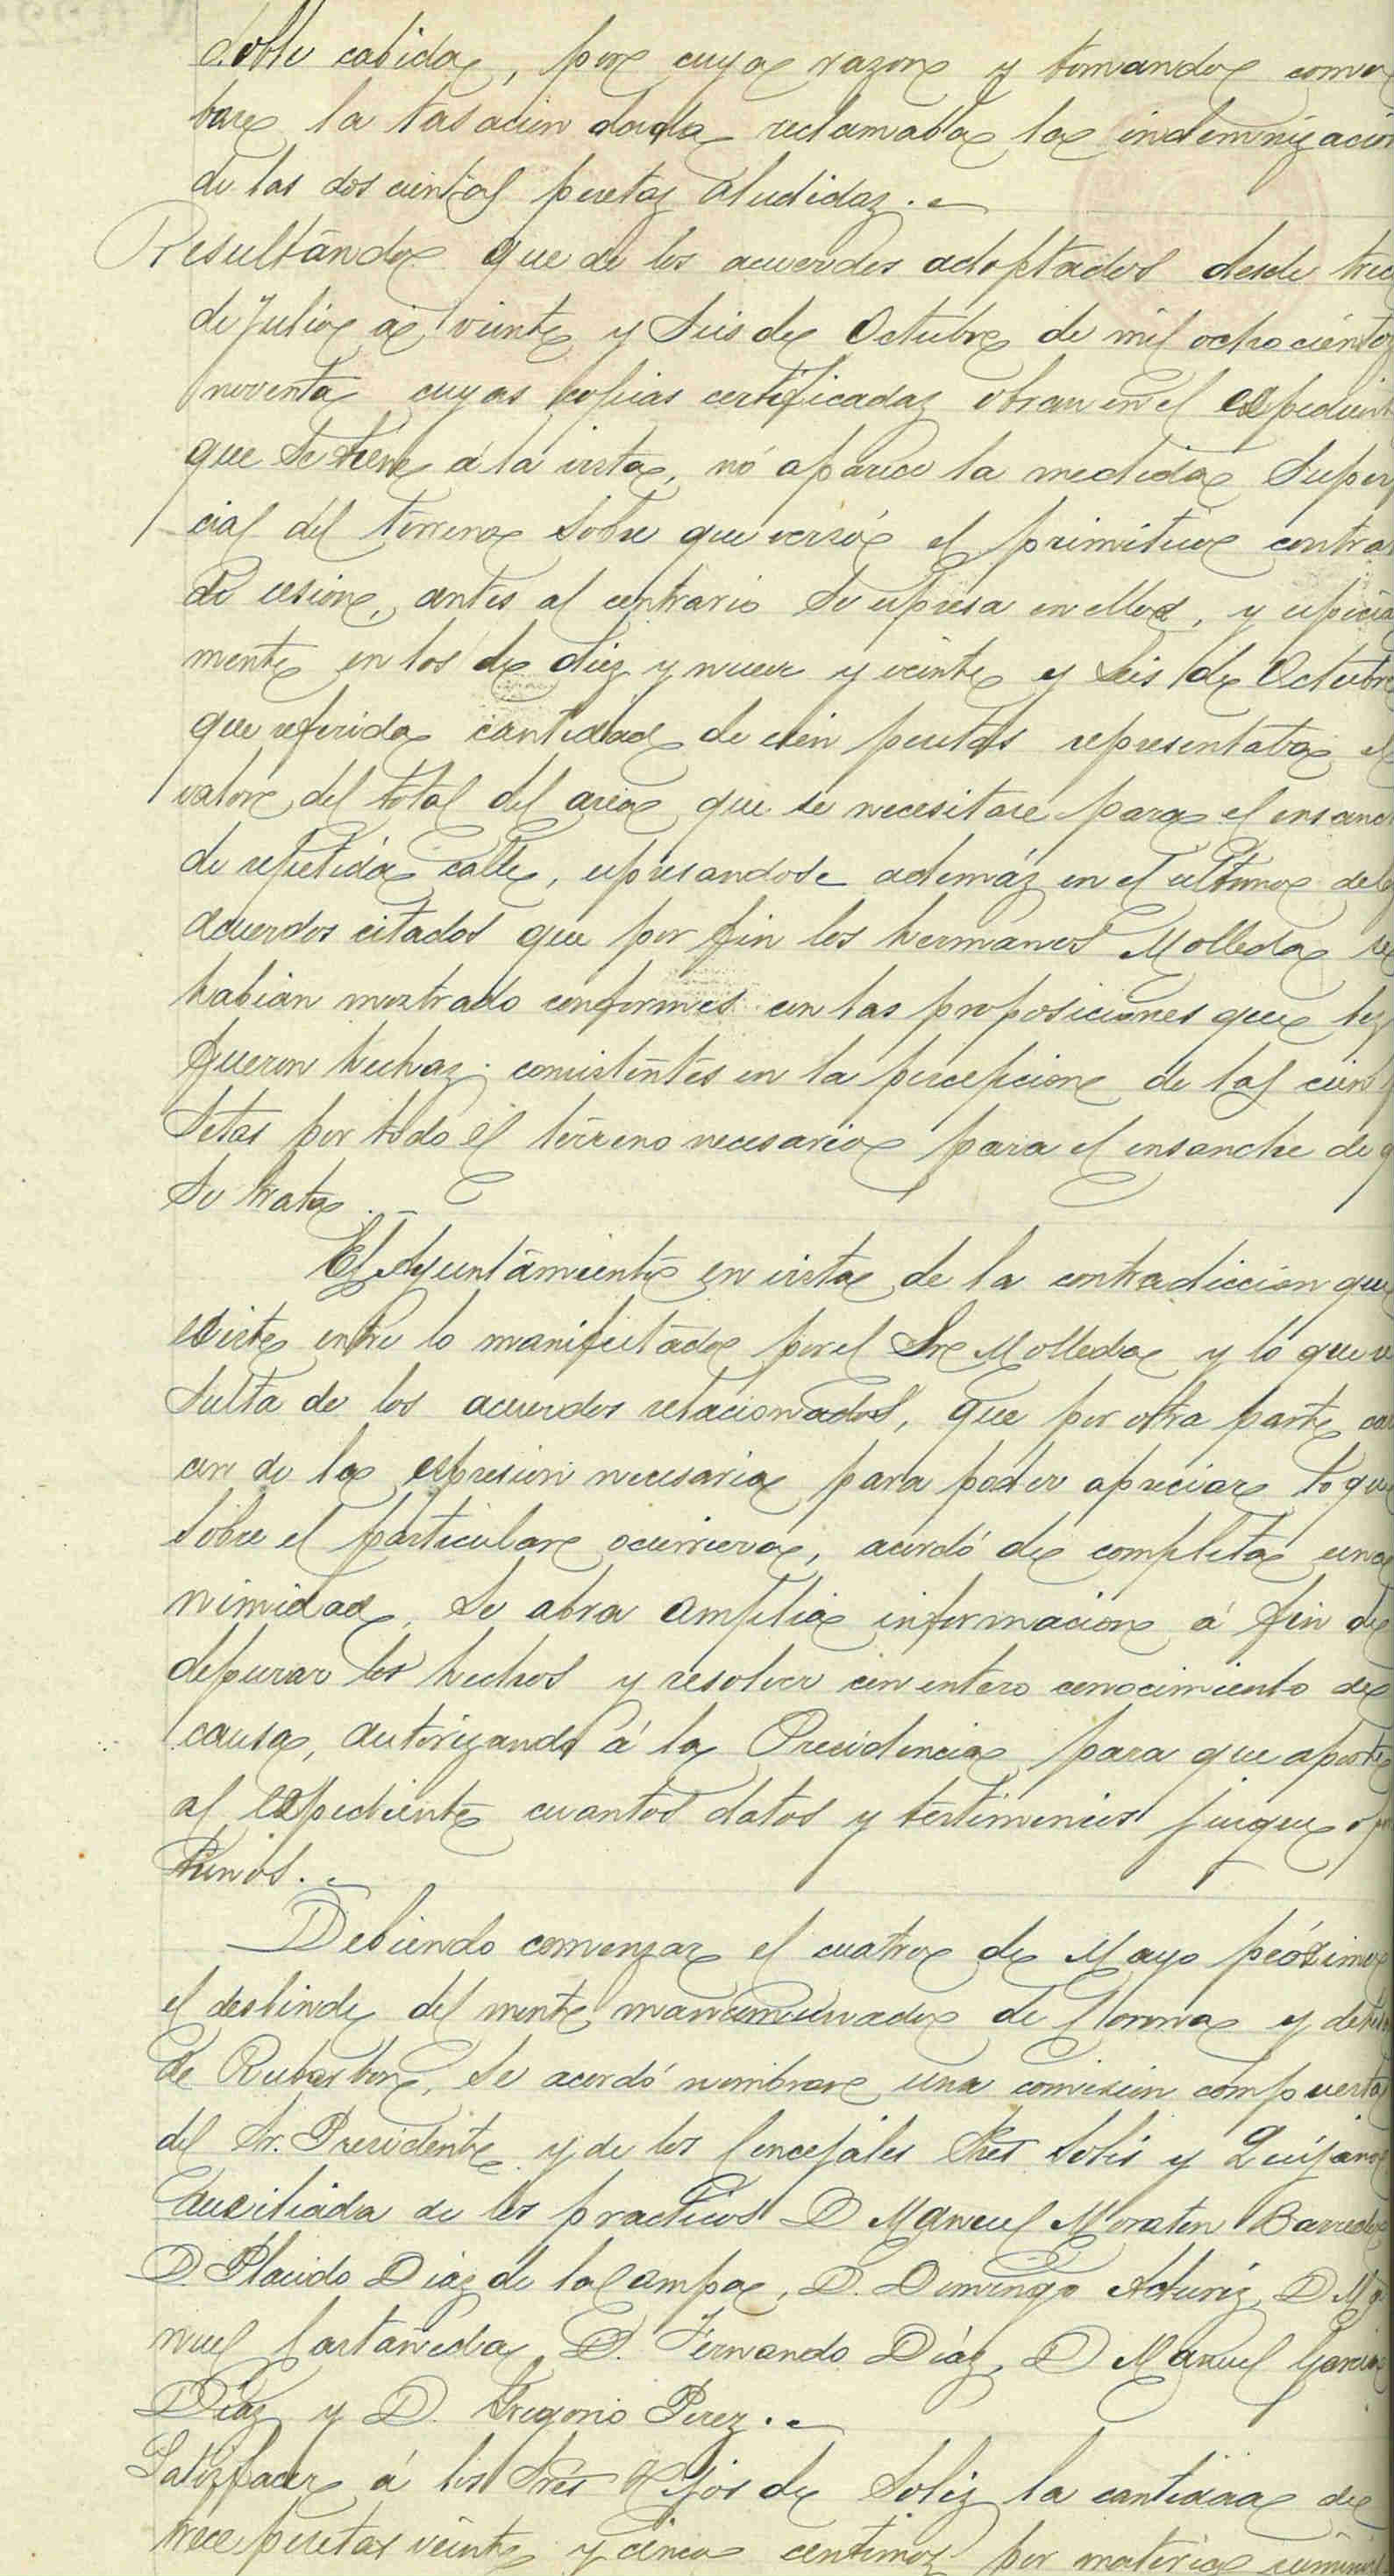 doble cabida, por cuya razon y tomando como
base la tasacion dada reclamaba la indemnizacion
de las dos cientas pesetas aludidas.
Resultando que de los acuerdos adoptados desde trece
de Julio á veinte y seis de Octubre de mil ochocientos
noventa cuyas copias certificadas obran en el expediente
que se tiene á la vista, nó aparece la medida superfi
cial del terreno sobre que versó el primitivo contra
de cesion, antes al contrario se espresa en ellos, y especial
mente en los de diez y nueve y veinte y seis de Octubre
que referida cantidad de cien pesetas representaba el
valor del total del area que se necesitase para el ensanche
de repetida calle, espresandose además en el ultimo de los
acuerdos citados que por fin los hermanos Molleda se
habian mostrado conformes con las proposiciones que les
fueron hechas consistentes en la percepcion de las cien pe
setas por todo el terreno necesario para el ensanche de q
se trata.
El Ayuntamiento en vista de la contradiccion que
existe entre lo manifestado por el Sr Molleda y lo que re
sulta de los acuerdos relacionados, que por otra parte care
cen de la espresion necesaria para poder apreciar lo que
sobre el particular ocurriera, acordó de completa una
nimidad, se abra amplia informacion á fin de
depurar los hechos y resolver con entero conocimiento de
causa, autorizando á la Presidencia para que aporte
al expediente cuantos datos y testimonios juzgue opor
tunos.
Debiendo comenzar el cuatro de Mayo próximo
el deslinde del monte mancomunado de y
de se acordó nombrar una comision compuesta
del Sr. Presidente y de los Concejales Sres Solis y Quijano
auxiliada de los practicos D Manuel Moraton Barreda
D. Placido Diaz de la Campa, D. Domingo D Ma
nuel Castañeda, D. Fernando Diaz, D Manuel Garcia
Diaz y D. Gregorio Perez.
Satisfacer á los Sres Hijos de Solis la cantidad de
trece pesetas veinte y cinco centimos por material